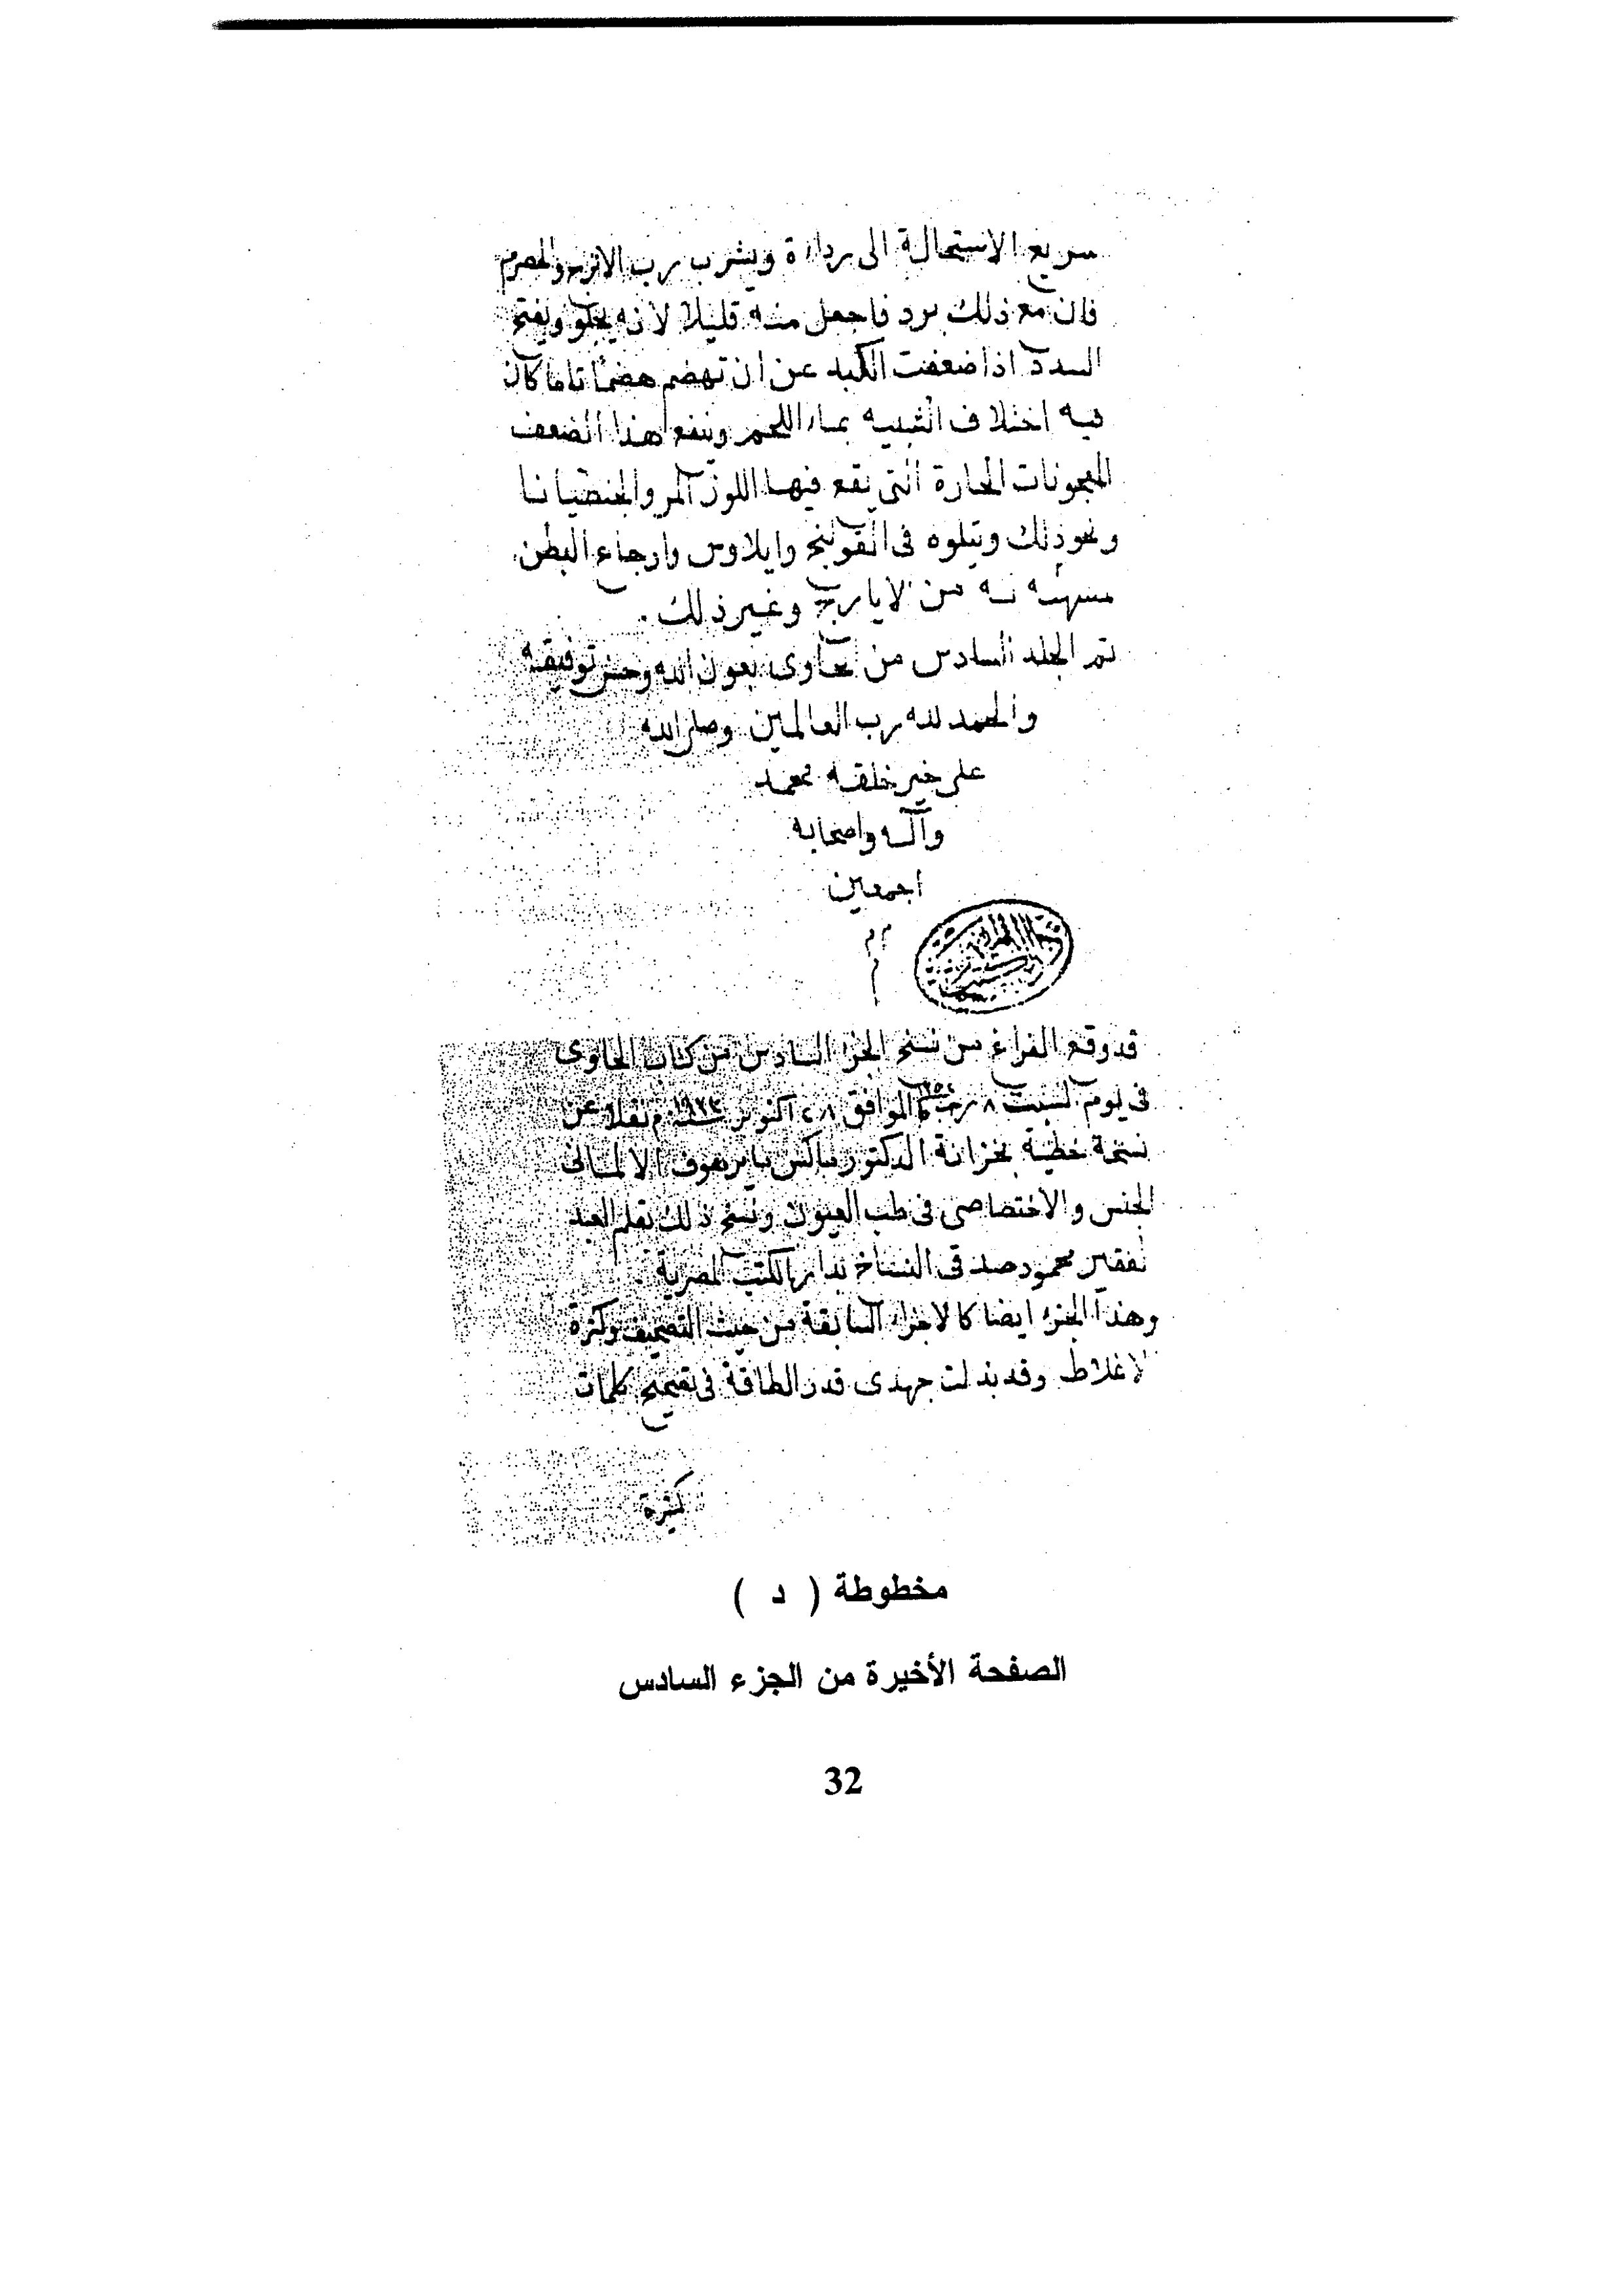 سريع الاستحالة الى رداءة ويشرب رب الاترج والحصرم
فان مع ذلك برد فاجعل منه قليلا لانه يجلو ويفتح
السدد اذا ضعفت الكبد عن ان تهضم هضما تاما كان
فيه اختلاف الشبيه بماء اللحم وينفع هذا الضعف
المعجونات الحارة التى يقع فيها اللوز المر والجنطيانا
ونحو ذلك ويتلوه فى القولنج وايلاوس واوجاع البطن
من الايارج وغير ذلك.
تم الجلد السادس من الحاوى بعون الله وحسن توفيقه
والحمد لله رب العالمين وصلى الله
على خير خلقه محمد
وآله واصحابه
اجمعين
قد وقع الفراغ من نسخ الجزء السادس من كتاب الحاوى
فى يوم السبت ٨ رجب سنة ١٣٥٢ الموافق ٢٨ اكتوبر سنة ١٩٣٣ م نقلا عن
نسخة خطية بخزانة الدكتور ماكس مايرهوف الالمانى
الجنس والاختصاصى فى طب العيون ونسخ ذلك بقلم العبد
الفقير محمود صدقى النساخ بدار الكتب المصرية.
وهذا الجزء ايضا كالاجزاء السابقة من حيث التصحيف وكثرة
الاغلاط وقد بذلت جهدى قدر الطاقة فى تصحيح كلمات
كثيرة
مخطوطة ( د )
الصفحة الأخيرة من الجزء السادس
32